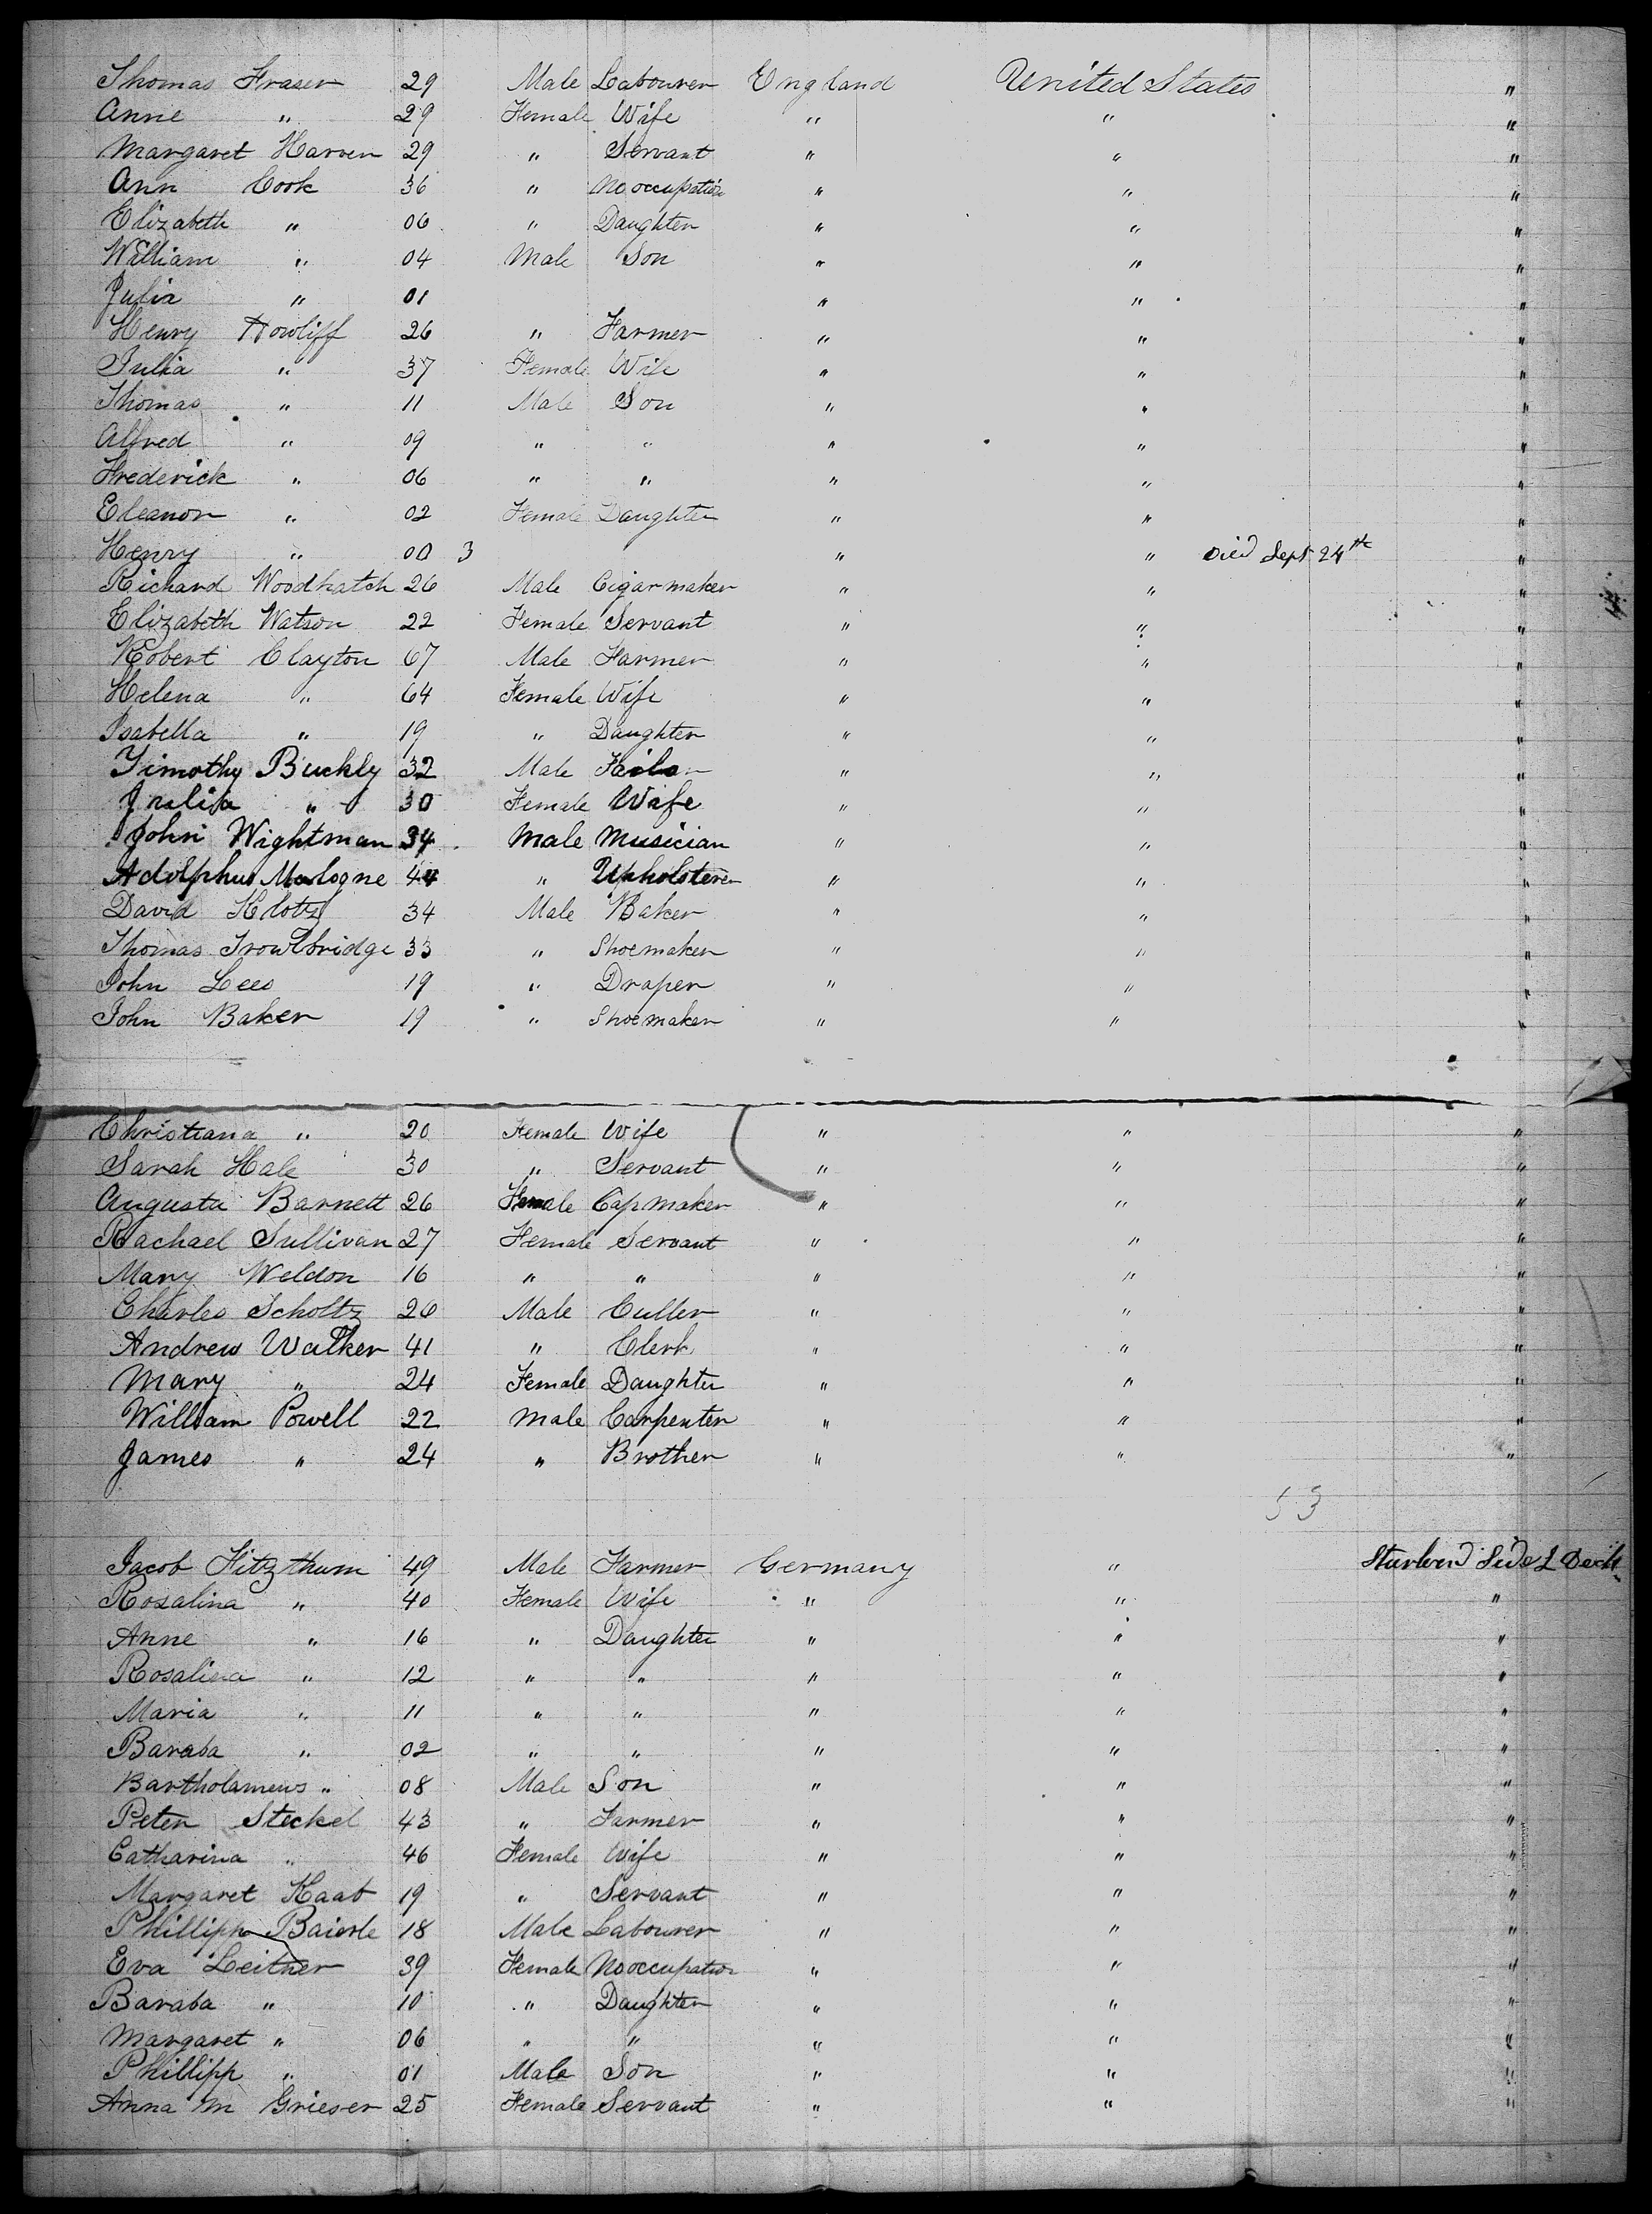 Thomas Fraser 29 Male Labourer England United States "
Anne " 29 Female Wife " " "
Margaret Harven 29 " Servant " " "
Ann Cook 36 " No occupation " " "
Elizabeth " 06 " Daughter " " "
William " 04 Male Son " " "
Julia " 01 " " "
Henry Howliff 26 " Farmer " " "
Julia " 37 Female Wife " " "
Thomas " 11 Male Son " " "
Alfred " 09 " " " " "
Frederick " 06 " " " " "
Eleanor " 02 Female Daughter " " "
Henry " 00 3 " " Died Sept 24th "
Richard Woodhatch 26 Male Cigar maker " " "
Elizabeth Watson 22 Female Servant " " "
Robert Clayton 67 Male Farmer " " "
Helena " 64 Female Wife " " "
Isabella " 19 " Daughter " " "
Timothy Buckly 32 Male " " "
Julia " 30 Female Wife " " "
John Wightman 34 Male Musician " " "
Adolphus Malogne 44 " Upholsterer " " "
David Klotz 34 Male Baker " " "
Thomas Trowbridge 33 " Shoemaker " " "
John Lees 19 " Draper " " "
John Baker 19 " Shoemaker " " "
Christiana " 20 Female Wife " " "
Sarah Hale 30 " Servant " " "
Augusta Barnett 26 Female Cap maker " " "
Rachael Sullivan 27 Female Servant " " "
Mary Weldon 16 " " " " "
Charles Scholtz 26 Male Cutter " " "
Andrew Walker 41 " Clerk " " "
Mary " 24 Female Daughter " " "
William Powell 22 Male Carpenter " " "
James " 24 " Brother " " "
53
Jacob Fitzthum 49 Male Farmer Germany " Starbord Side L Deck
Rosalina " 40 Female Wife " " "
Anne " 16 " Daughter " " "
Rosalina " 12 " " " " "
Maria " 11 " " " " "
Baraba " 02 " " " " "
Bartholamews " 08 Male Son " " "
Peter Steckel 43 " Farmer " " "
Catharina " 46 Female Wife " " "
Margaret Kaab 19 " Servant " " "
Phillipp Baierle 18 Male Labourer " " "
Eva Leitner 39 Female No occupation " " "
Baraba " 10 " Daughter " " "
Margaret " 06 " " " " "
Phillipp " 01 Male Son " " "
Anna M Grieser 25 Female Servant " " "